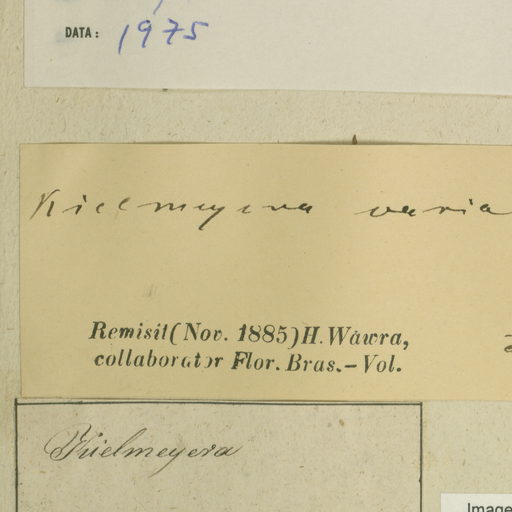 DATA: 1975
Kielmeyera varia
Remisit (Nov. 1885) H. Wawra,
collaborator Flor. Bras. – Vol.
Kielmeyera
Image